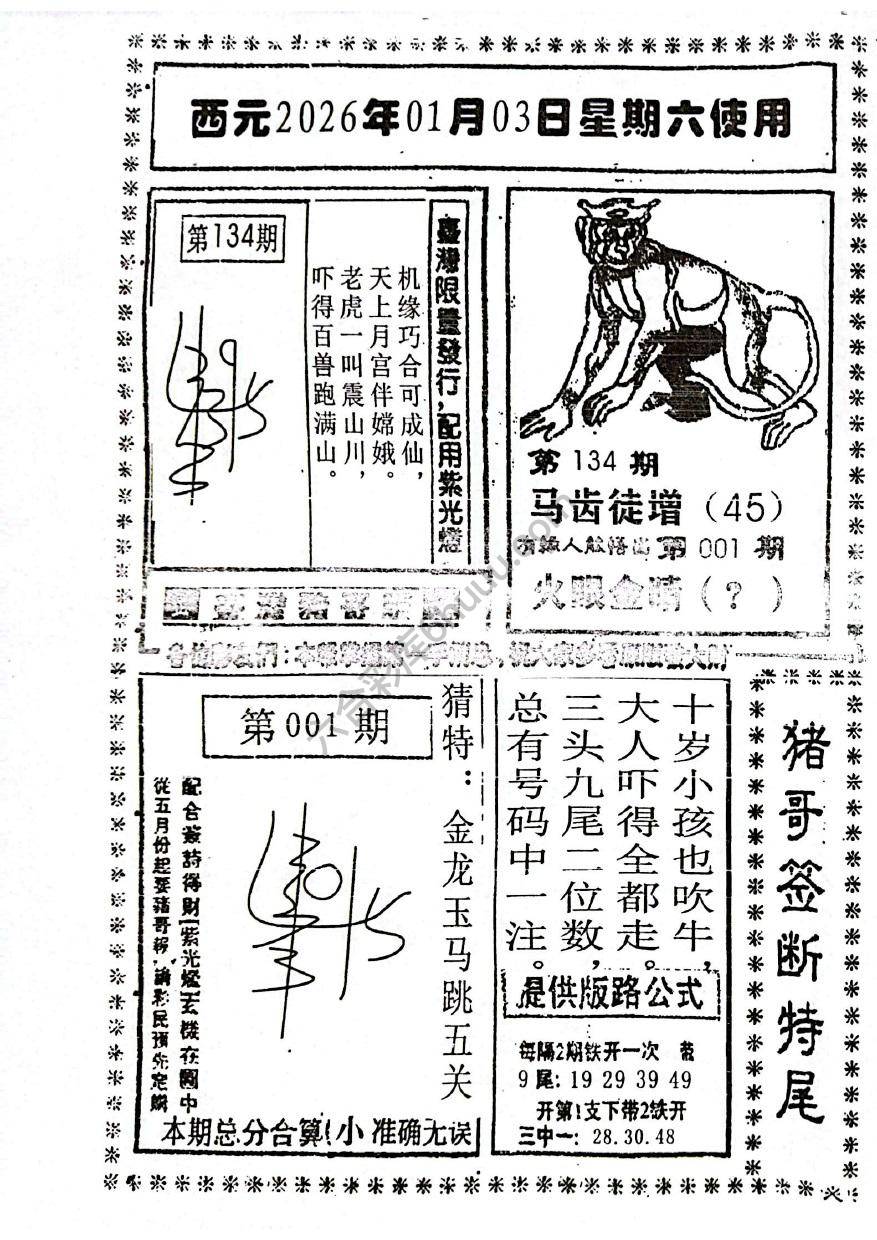 西元2026年01月03日星期六使用
第134期
机缘巧合可成仙,
天上月宫伴嫦娥。
老虎一叫震山川,
吓得百兽跑满山。
臺灣限量發行,配用紫光燈
第 134 期
马齿徒增（45）
有缘人能悟出第 001 期
火眼金睛（?）
第001期
猜特：金龙玉马跳五关
配合簽詩得財[紫光燈]玄機在圖中
從五月份起要猪哥報,請彩民預先定購
本期总分合算(小 准确无误
十岁小孩也吹牛,
大人吓得全都走。
三头九尾二位数,
总有号码中一注。
提供版路公式
每隔2期铁开一次 带
9尾: 19 29 39 49
开第1支下带2铁开
三中一: 28.30.48
猪哥签断特尾